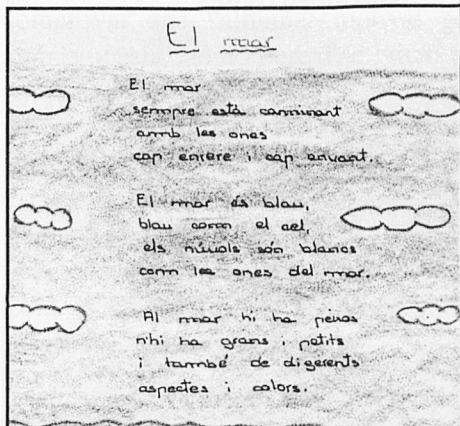 El mar
El mar
sempre está caminant
amb les ones
cap enrere i cap envant.
El mar és blau,
blau com el cel,
els núvols són blancs
com les ones del mar.
Al mar hi ha peixos
n'hi ha grans i petits
i també de diferents
aspectes i colors.